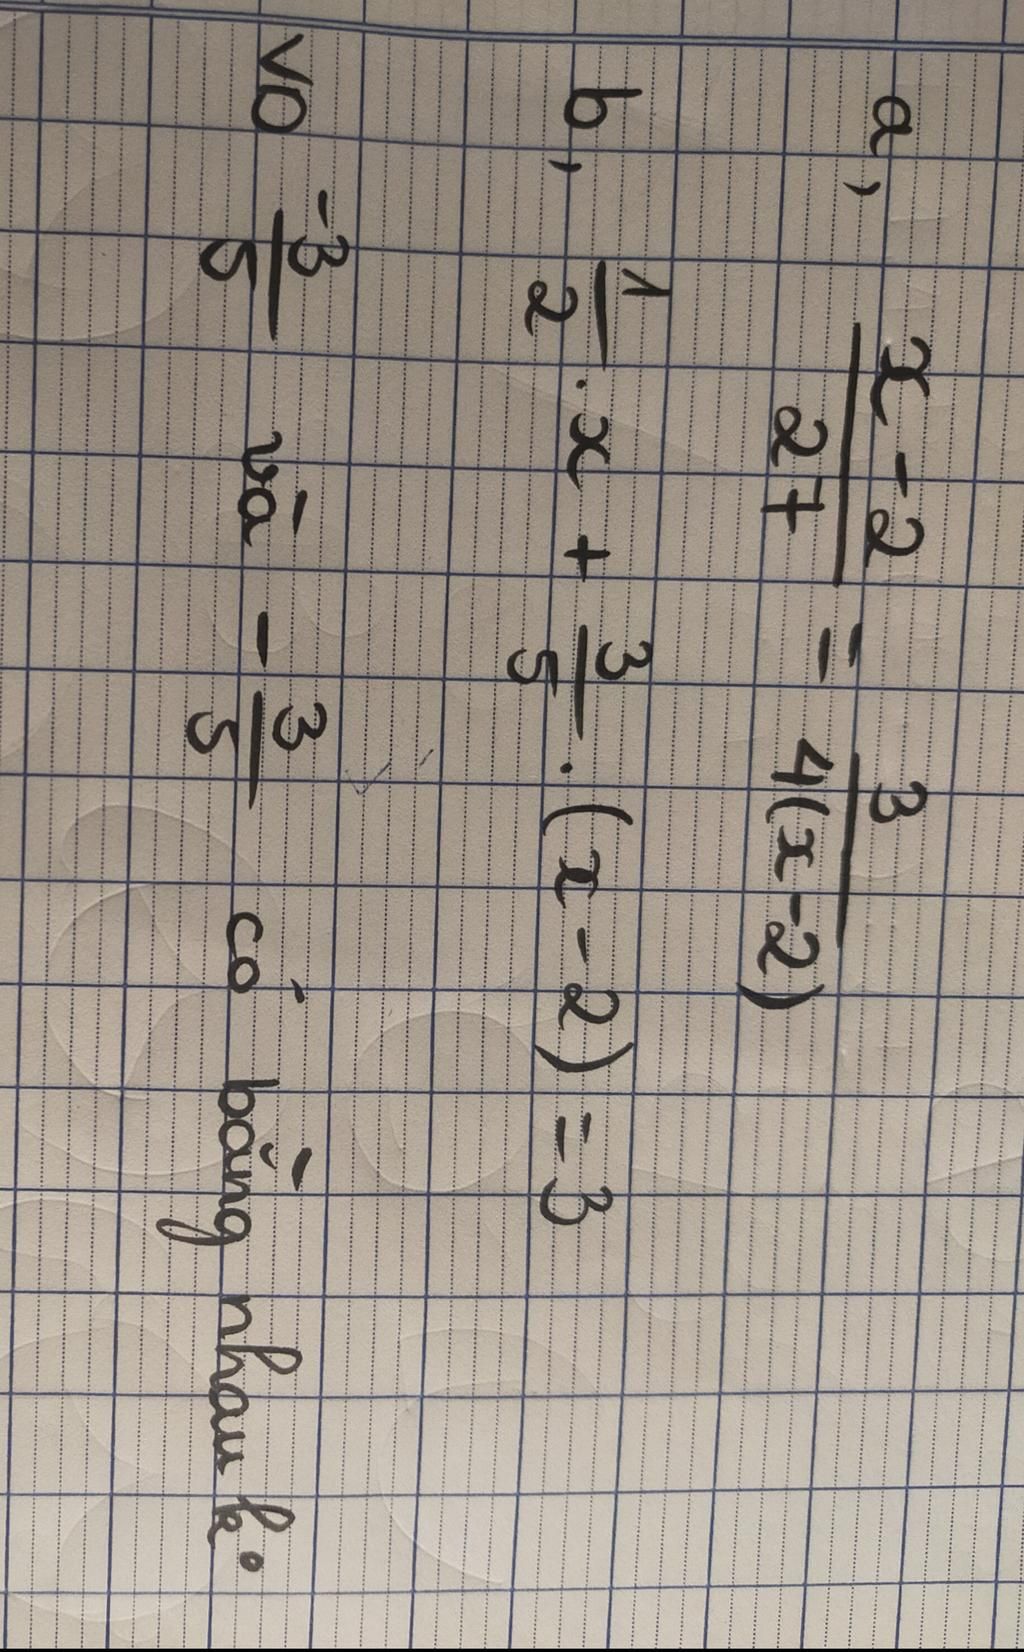 a, \frac{x-2}{27} = \frac{3}{4(x-2)}
b, \frac{1}{2} . x + \frac{3}{5} . (x-2) = 3
VD \frac{-3}{5} và - \frac{3}{5} có bằng nhau k.